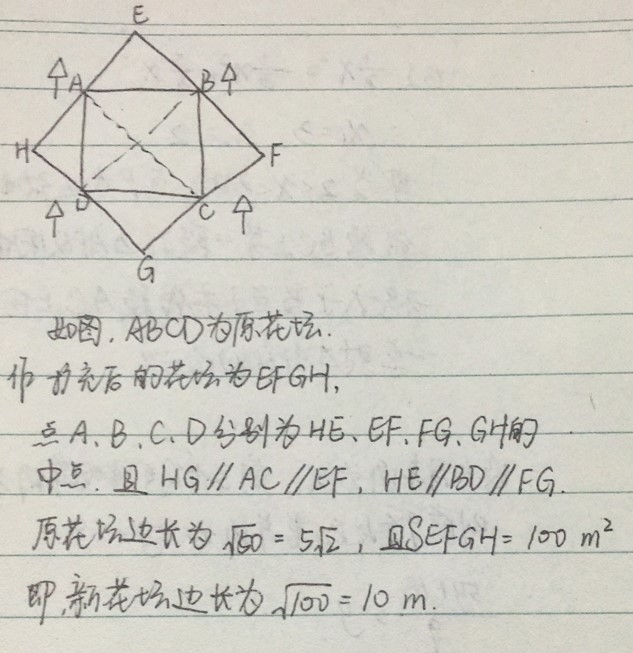 E
A
B
H
F
D
C
G
如图，ABCD为原花坛.
作扩充后的花坛为EFGH,
点A、B、C、D分别为HE、EF、FG、GH的
中点.且HG∥AC∥EF，HE∥BD∥FG.
原花坛边长为√50=5√2，且SEFGH=100 m²
即,新花坛边长为√100=10 m.